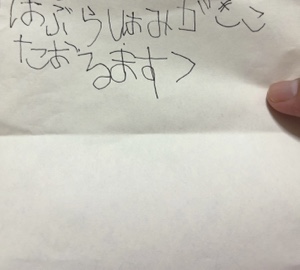 はぶらしはみがきこ
たおるますク